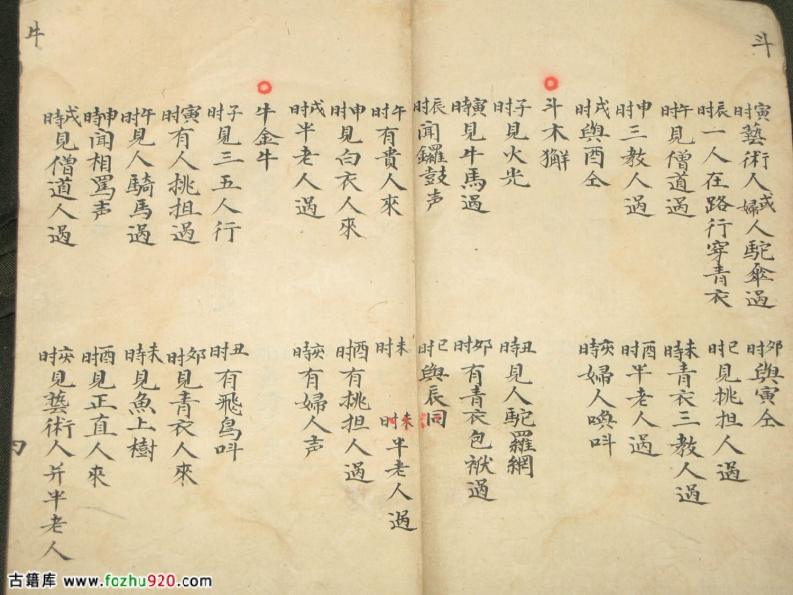 斗
寅时藝術人或婦人駝傘過
卯时與寅仝
辰时一人在路行穿青衣
巳时見挑担人過
午时見僧道過
未时青衣三教人過
申时三教人過
酉时半老人過
戌时與酉仝
亥时婦人喚呌
斗木獬
子时見火光
丑时見人駝羅網
寅時見牛馬過
卯时有青衣包袱過
辰时聞鑼鼓声
巳时與辰同
午时有貴人來
未时
未时半老人過
申时見白衣人來
酉时有挑担人過
戌时半老人過
亥时有婦人声
牛金牛
子时見三五人行
丑时有飛鳥呌
寅时有人挑担過
卯时見青衣人來
午时見人騎馬過
未時見魚上樹
申時聞相罵声
酉时見正直人來
戌時見僧道人過
亥时見藝術人并半老人
牛
古籍库 www.fozhu920.com